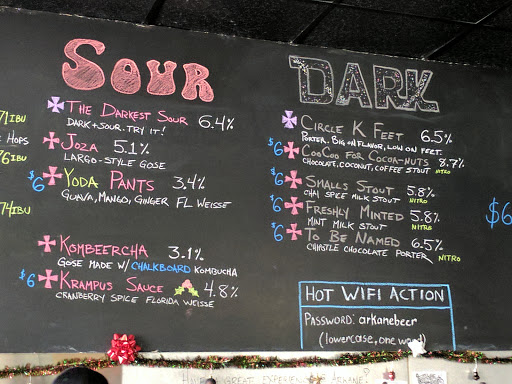 SOUR
THE DARKEST SOUR 6.4%
DARK + SOUR. TRY IT!
JOZA 5.1%
LARGO-STYLE GOSE
$6 YODA PANTS 3.4%
GUAVA, MANGO, GINGER FL WEISSE
KOMBEERCHA 3.1%
GOSE MADE W/ CHALKBOARD KOMBUCHA
$6 KRAMPUS SAUCE 4.8%
CRANBERRY SPICE FLORIDA WEISSE
71 IBU
HOPS
76 IBU
74 IBU
DARK
CIRCLE K FEET 6.5%
PORTER. BIG ON FLAVOR, LOW ON FEET.
$6 COOCOO FOR COCOA-NUTS 8.7%
CHOCOLATE, COCONUT, COFFEE STOUT NITRO
$6 SMALLS STOUT 5.8%
CHAI SPICE MILK STOUT NITRO
$6 FRESHLY MINTED 5.8%
MINT MILK STOUT NITRO
$6 TO BE NAMED 6.5%
CHASTLE CHOCOLATE PORTER NITRO
$6
HOT WIFI ACTION
PASSWORD: arkanebeer
(lowercase, one word)
GREAT EXPERIENCE